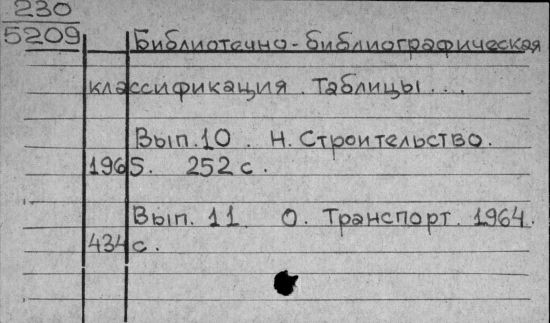 230
5209
Библиотечно-библиографическая
классификация. Таблицы...
Вып. 10. Н. Строительство.
1965. 252 с.
Вып. 11. О. Транспорт. 1964.
434 с.